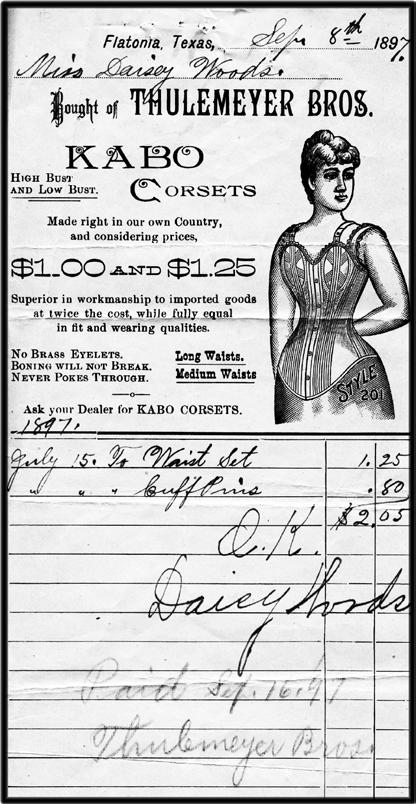 Flatonia, Texas, Sep. 8th 1897.
Miss Daisey Woods.
Bought of THULEMEYER BROS.
KABO
HIGH BUST
AND LOW BUST.
CORSETS
Made right in our own Country,
and considering prices,
$1.00 AND $1.25
Superior in workmanship to imported goods
at twice the cost, while fully equal
in fit and wearing qualities.
NO BRASS EYELETS.
BONING WILL NOT BREAK.
NEVER POKES THROUGH.
Long Waists.
Medium Waists
STYLE
201
Ask your Dealer for KABO CORSETS.
1897.
July 15. To Waist Set 1.25
" " " Cuff Pins .80
$2.05
O.K.
Daisy Woods
Paid Sep. 16. 97
Thulemeyer Bros.